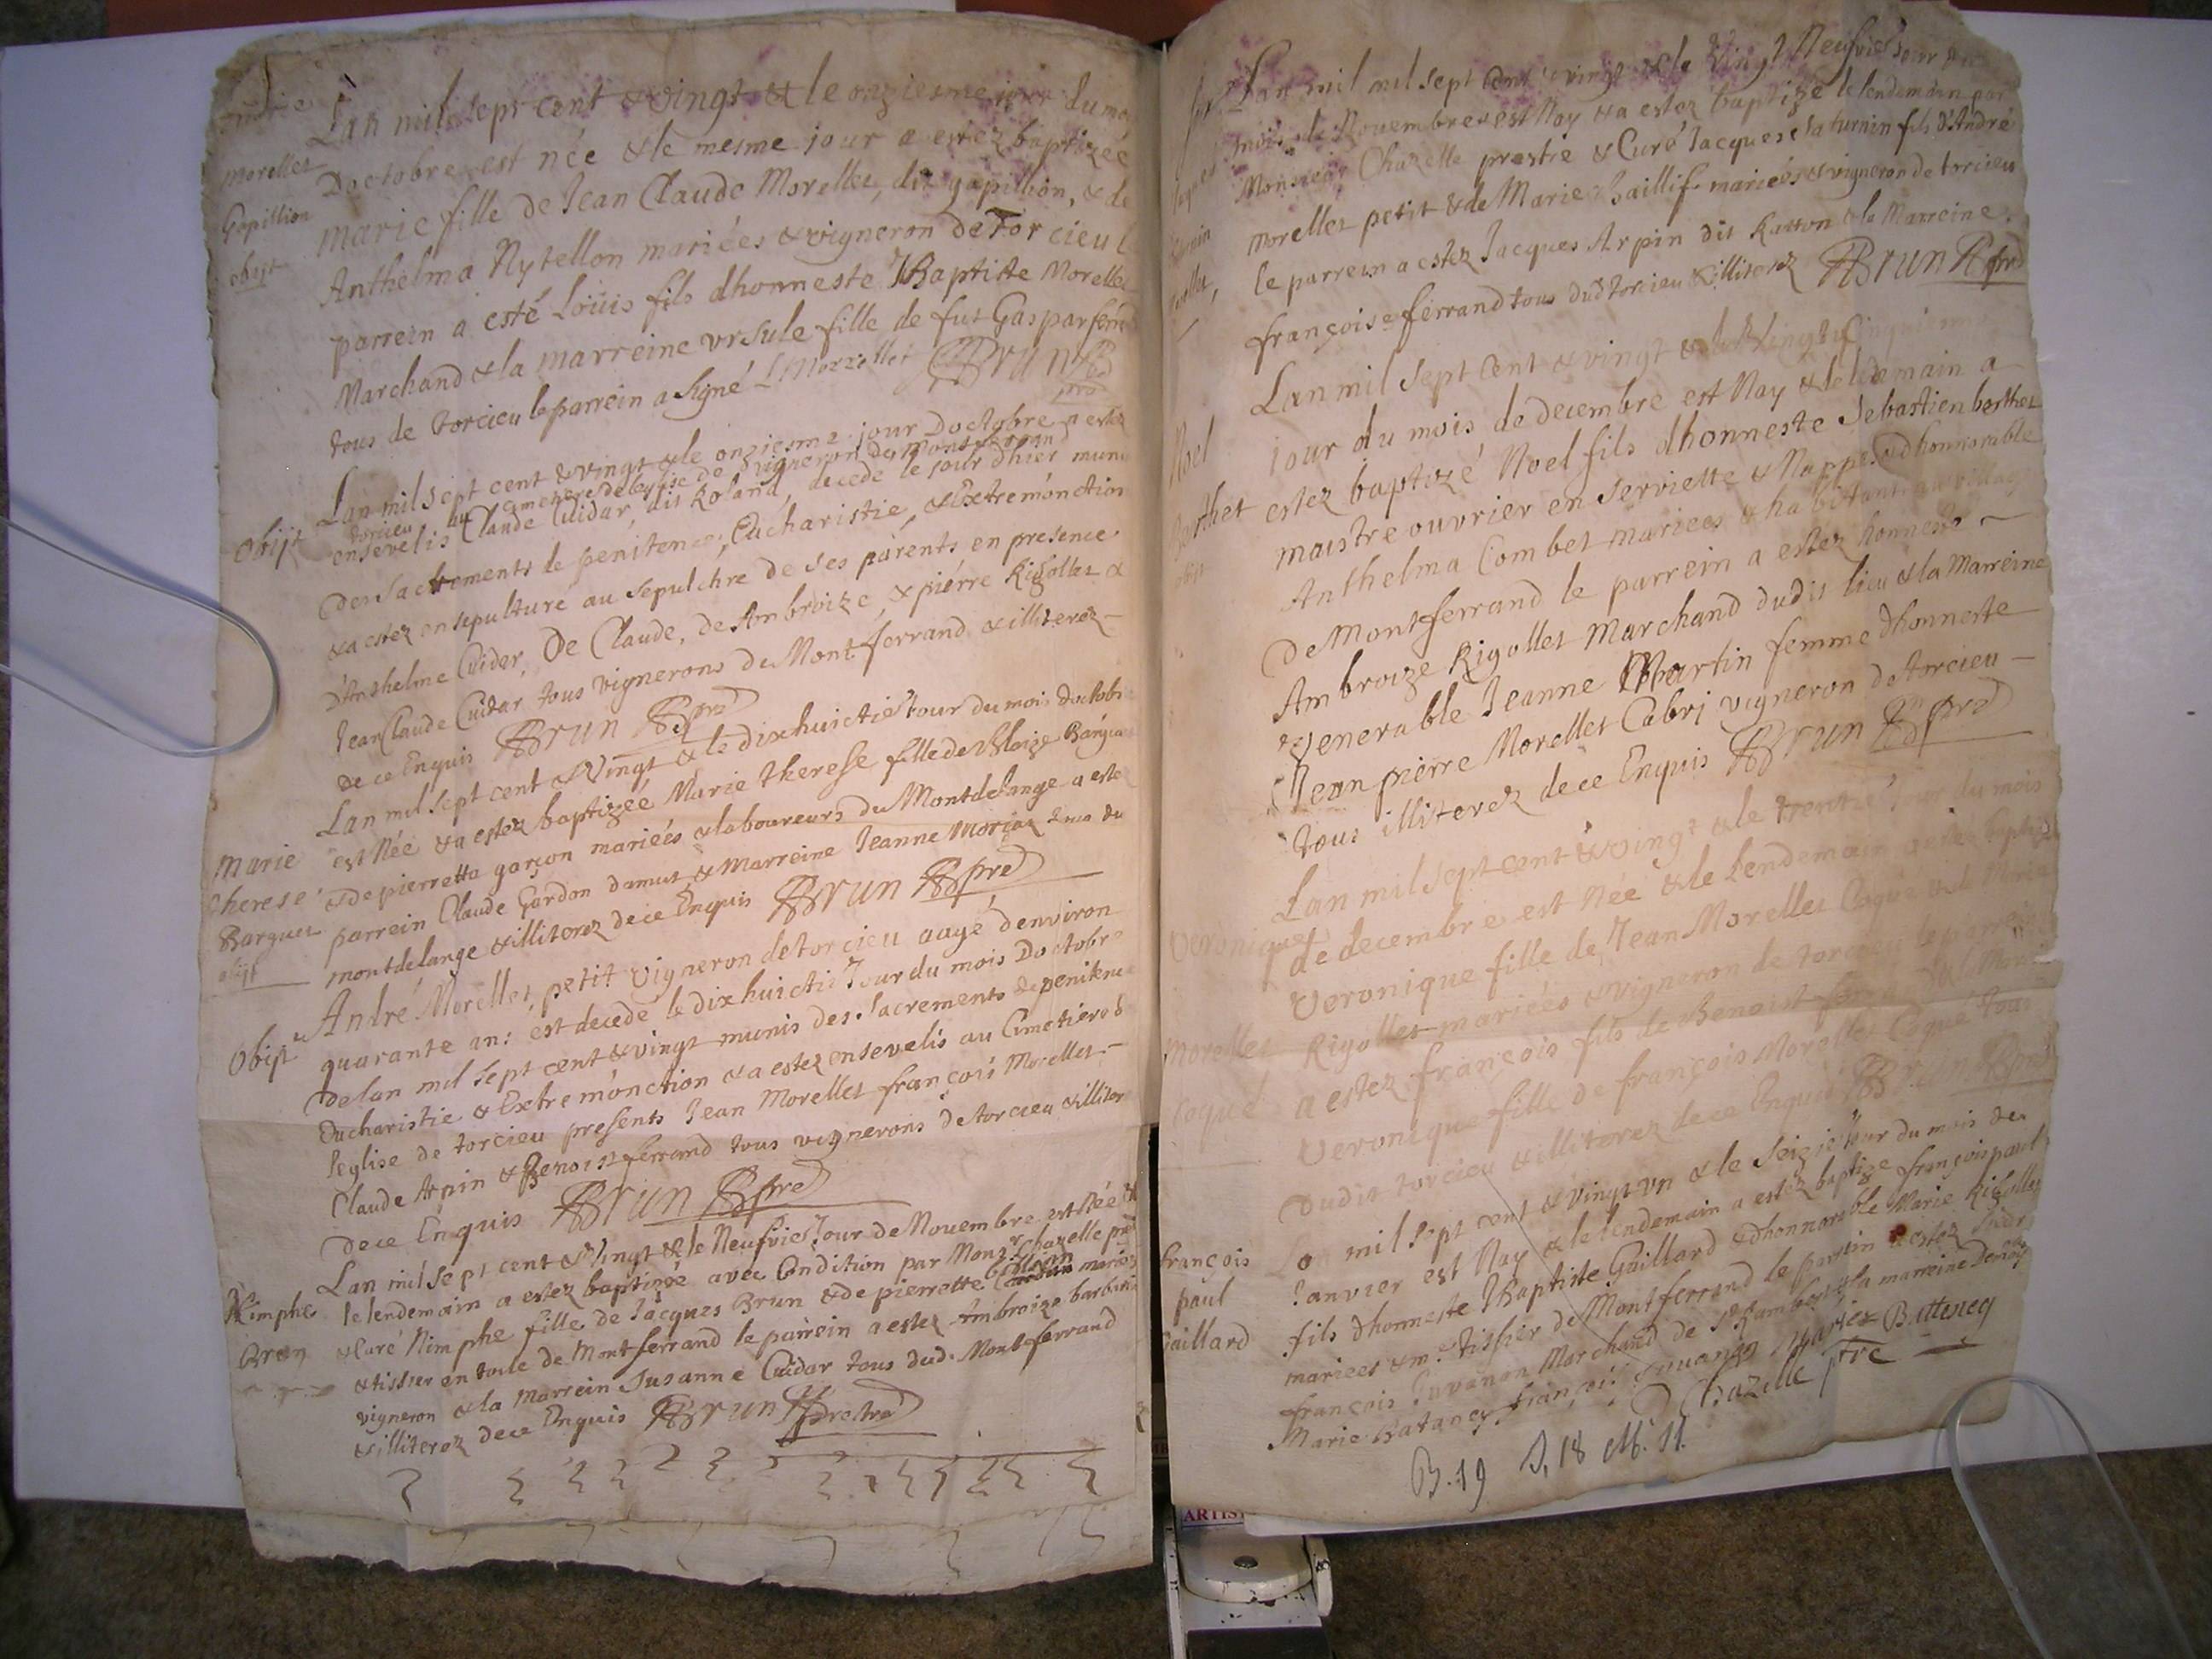 marie
Morellet
Gapillion
obijt
Lan mil sept cent & vingt & le onziesme jour du mois
Doctobre est née & le mesme jour a estez baptizée
marie fille de Jean Claude Morellet, dit gapillion, & de
Anthelma Nytellon mariées & vigneron de Torcieu le
parrein a esté Loüis fils dhonneste JBaptiste Morellet
Marchand & la marreine ursule fille de fut Gaspar
tous de torcieu le parrein a signé L Morellet Brun
Obijt
Lan mil sept cent & vingt & le onziesme jour Doctobre a estez
torcieu au cimetiere de leglise de vigneron de Montferrand
ensevelis Claude Cuidar, dit Roland, decede le jour dhier munis
des sacrements de penitence, Eucharistie, & Extremonction
& a estez ensepulturé au sepulchre de ses parents en presence
d'Anthelme Cuider, De Claude, de Ambroize, & piérre Rigollet &
Jean Claude Cuidar tous vignerons de Montferrand & illiterez
de ce Enquis Brun pre
Marie
therese
Barguet
obijt
Lan mil sept cent & Vingt & le dixhuictié Jour du mois doctobre
est Née & a estez baptizée Marie therese fille de Blaize
& de pierrette garçon mariées & laboureurs du Montdelange a estez
parrein Claude Gardon damut & Marreine Jeanne tous du
montdelange & illiterez de ce Enquis Brun pre
Obijt
André Morellet, petit vigneron de torcieu aagé denviron
quarante ans est decedé le dixhuictié Jour du mois Doctobre
de lan mil sept cent & vingt munis des sacrements de penitence
Eucharistie & Extremonction & a estez ensevelis au Cimetiere de
leglise de torcieu presents Jean Morellet françois Morellet
Claude Arpin & Benoist ferrand tous vignerons de torcieu & illiterez
de ce Enquis Brun pre
Nimphe
Brun
Lan mil sept cent & Vingt & le Neufvié Jour de Novembre est Née &
le lendemain a estez baptizée avec Condition par Monsr Chazelle pre
& Curé Nimphe fille de Jacques Brun & de pierrette mariez
& tissier en toile de Montferrand le parrein a estez Ambroize
vigneron & la Marrein Susanne Cuidar tous dud. Montferrand
& illiterez de ce Enquis Brun prestre
Lan mil mil sept Cent & vingt & le Vingt Neufvié Jour du
mois de Novembre est Nay & a estez baptizé le lendemain par
Monsieur Chazelle prestre & Curé Jacques saturnin fils d'André
Morellet petit & de Marie baillif mariées & vigneron de torcieu
le parrein a estez Jacques Arpin dit Ratton & la Marreine
françoise ferrand tous dud torcieu & illiterez Brun pre
Noel
Berthet
obijt
Lan mil sept Cent & vingt & le Vingt Cinquiem
jour du mois de decembre est Nay & le lendemain a
estez baptizé Noel fils dhonneste Sebastien berthet
maistre ouvrier en serviette & Nappes & dhonnorable
Anthelma Combet mariees & habitant au village
de Montferrand le parrein a estez honneste
Ambroize Rigollet Marchand dudit lieu & la Marreine
Venerable Jeanne Martin femme dhonneste
Jean pierre Morellet Cabri vigneron de torcieu
tous illiterez de ce Enquis Brun pre
Veronique
Morellet
Coqué
Lan mil sept cent & vingt & le trentié jour du mois
de decembre est Née & le Lendemain a estez baptizé
Veronique fille de Jean Morellet Coqué & de Marie
Rigollet mariées & vigneron de torcieu le parrein
a estez françois fils de Benoist
Veronique fille de françois Morellet Coqué tous
Dudit torcieu & illiterez de ce Enquis Brun pre
françois
paul
Gaillard
Lan mil sept cent & vingt un & le Seizié Jour du mois de
Janvier est Nay & le lendemain a estéz baptize françois paul
fils dhonneste JBaptiste Gaillard & dhonnorable Marie Rigollet
mariees & me tissier de Montferrand le parrein a estez
françois Juvanon Marchand de St Rambert & la marreine
Marie françois Juvanon Marie
Chazelle ptre
B. 19 S, 18 M. 11.